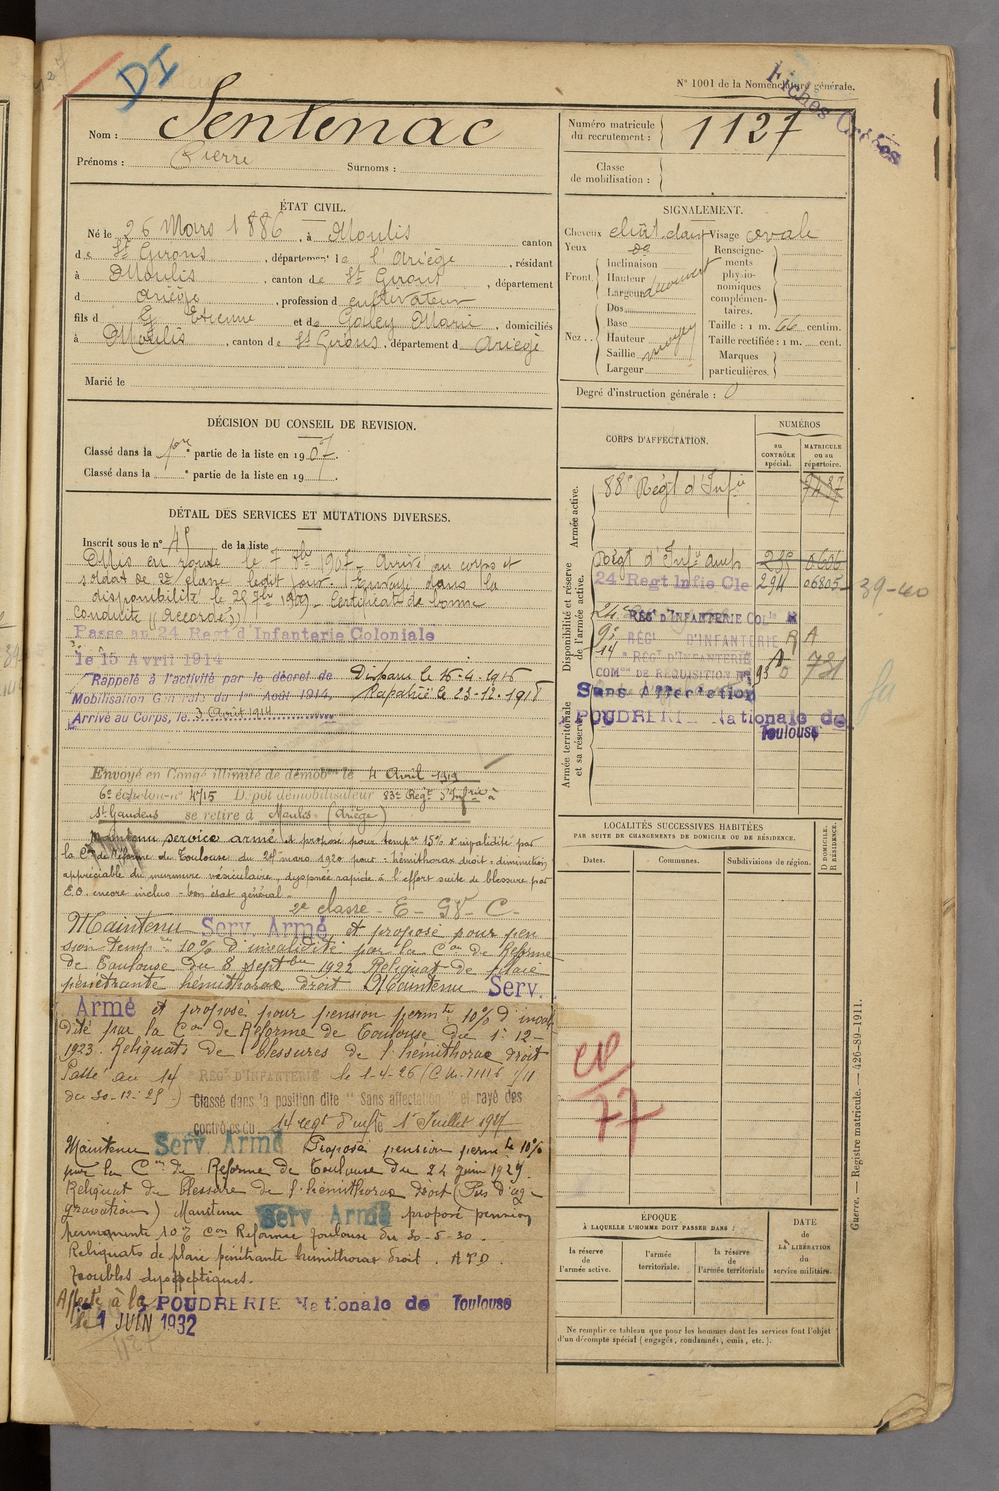 DI
N° 1001 de la Nomenclature générale.
Fiches
Nom : Sentenac
Prénoms : Pierre Surnoms :
Numéro matricule du recrutement : 1127
Classe de mobilisation :
ÉTAT CIVIL.
Né le 26 Mars 1886, à Moulis canton
de St Girons, département de l'Ariège, résidant
à Moulis, canton de St Girons, département
d Ariège, profession d cultivateur
fils d Etienne et de Marie, domiciliés
à Moulis, canton de St Girons, département d Ariège
Marié le
SIGNALEMENT.
Cheveux chât. Visage ovale
Yeux do
Front Inclinaison Hauteur Largeur découvert
Nez Dos Base Hauteur Saillie Largeur moyen
Renseignements physionomiques complémentaires.
Taille : 1 m. 66 centim.
Taille rectifiée : 1 m. cent.
Marques particulières.
Degré d'instruction générale : 0
DÉCISION DU CONSEIL DE REVISION.
Classé dans la 1re partie de la liste en 1907.
Classé dans la ° partie de la liste en 19
DÉTAIL DES SERVICES ET MUTATIONS DIVERSES.
Inscrit sous le n° 45 de la liste
Mis en route le 7 8bre 1907. Arrivé au corps et
soldat de 2e classe ledit jour. Envoyé dans la
disponibilité le 25 7bre 1909. Certificat de bonne
conduite "Accordé"
Passé au 24 Regt d'Infanterie Coloniale
le 15 Avril 1914
Rappelé à l'activité par le décret de
Mobilisation Générale du 1er Août 1914.
Arrivé au Corps, le 3 Août 1914
Disparu le 16-4-1916
Rapatrié le 23-12-1918
Envoyé en Congé illimité de démobon le 4 Avril 1919
6e échelon n° 4715 Dépôt démobilisateur 83e Regt d'Infrie à
St Gaudens se retire à Moulis (Ariège)
Maintenu service armé et proposé pour tempre 15% d'invalidité par
la Con de Réforme de Toulouse du 24 mars 1920 pour : hémithorax droit : diminution
appréciable du murmure vésiculaire, dyspnée rapide à l'effort suite de blessure par
E.O. encore inclus - bon état général.
2e classe - E - GV - C -
Maintenu Serv. Armé et proposé pour pen
sion tempre 10% d'invalidité par la Con de Réforme
de Toulouse du 8 septbre 1922 Reliquat de plaie
pénétrante hémithorax droit Maintenu Serv.
Armé et proposé pour pension permte 10% d'inval
dité par la Con de Réforme de Toulouse du 1-12-
1923. Reliquats de blessures de l'hémithorax droit
Passé au 14 REGt D'INFANTERIE le 1-4-26 (C.M.
du 30-12-25) Classé dans la position dite "Sans affectation" et rayé des
contrôles du 14 regt d'infie 1er Juillet 1927
Maintenu Serv. Armé Proposé pension permte 10%
par la Con de Réforme de Toulouse du 24 juin 1929.
Reliquat de blessure de l'hémithorax droit (Pas d'ag-
gravation) Maintenu Serv. Armé proposé pension
permanente 10% Con Réforme Toulouse du 30-5-30.
Reliquats de plaie pénétrante hémithorax droit.
Troubles dyspeptiques.
Affecté à la POUDRERIE Nationale de Toulouse
le 1 JUIN 1932
CORPS D'AFFECTATION.
NUMÉROS
au CONTRÔLE spécial.
MATRICULE ou au répertoire.
Armée active.
88e Régt d'Infie
Disponibilité et réserve de l'armée active.
Régt d'Infie 
24 Regt Infie Cle 294 06805 39-40
24e REGt D'INFANTERIE COLle R
REGt D'INFANTERIE R A
14 REGt D'INFANTERIE
COMon DE REQUISITION
Sans Affectation
Armée territoriale et sa réserve.
POUDRERIE Nationale de Toulouse
LOCALITÉS SUCCESSIVES HABITÉES
PAR SUITE DE CHANGEMENTS DE DOMICILE OU DE RÉSIDENCE.
Dates. Communes. Subdivisions de région.
D DOMICILE. R RÉSIDENCE.
77
ÉPOQUE
À LAQUELLE L'HOMME DOIT PASSER DANS :
la réserve de l'armée active.
l'armée territoriale.
la réserve de l'armée territoriale
DATE de LA LIBÉRATION du service militaire.
Ne remplir ce tableau que pour les hommes dont les services font l'objet
d'un décompte spécial (engagés, condamnés, omis, etc.).
Guerre. — Registre matricule. — 426-89-1911.